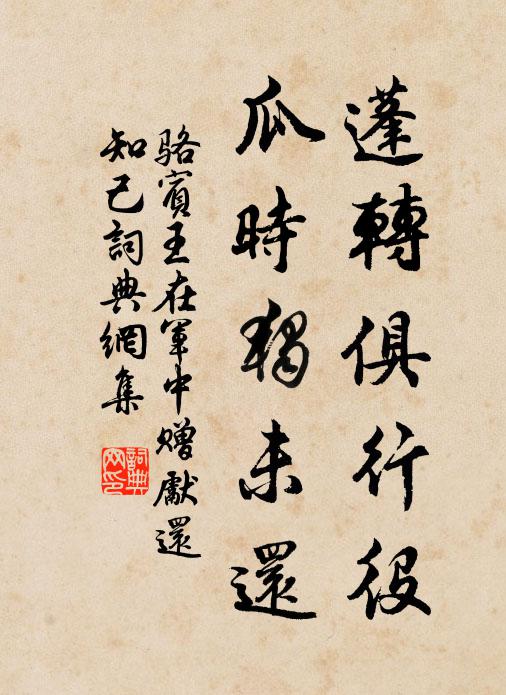 蓬轉俱行役
瓜時獨未還
駱賓王在軍中贈獻還
知己詞典網集
詞典网印